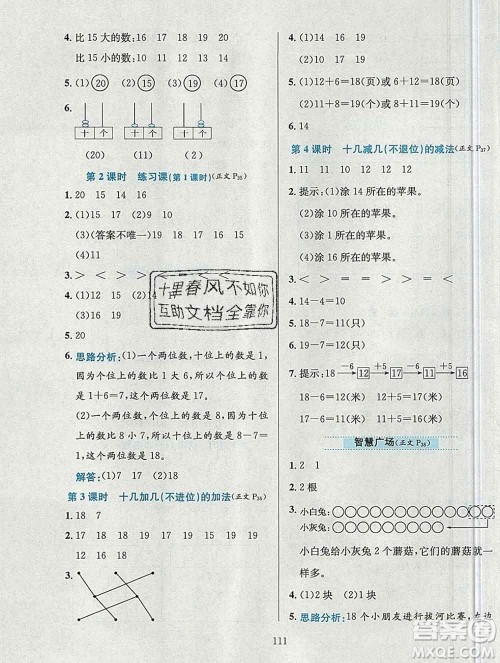 4. 比 15 大的数： 16 17 18 19 20
比 15 小的数： 11 12 13 14
5. (1)⑳ (2)⑮ (3)⑲ (4)⑰
6.
十 个 十 个 十 个
(20) (11) (2)
第 2 课时 练习课(第 1 课时)(正文 P35)
1. 20 15 14 16
2. (1)0 17 (2)9 0
(3)(答案不唯一) 19 18 17 15
3. ＞ ＜ ＜ ＞ ＞ ＜
4. (1)2 (2)4 (3)
5. 20
6. 思路分析：(1)一个两位数，十位上的数是 1，
因为个位上的数比 1 大 6，所以个位上的数
是 1＋6＝7。
(2)一个两位数，十位上的数是 1，因为个位
上的数比 8 小 7，所以个位上的数是
8－7＝1。
解答：(1)7 17 (2)18
第 3 课时 十几加几(不进位)的加法(正文 P36)
1. 18 7
2. 17 18 16 19 19 17
12 19 18 15
3.
4. (1)19 14 18 16
(2)14 18 17 19
5. (1)12＋6＝18(页)或 6＋12＝18(页)
(2)11＋8＝19(个)或 8＋11＝19(个)
6. 14
第 4 课时 十几减几(不退位)的减法(正文 P37)
1. 11 11 10 12 12 13
2. 提示：(1)涂 14 所在的苹果。
(2)涂 10 所在的苹果。
(3)涂 11 所在的苹果。
3. ＝ ＞ ＞ ＞ ＝ ＞
4. 14－4＝10(个)
5. 18－6＝12(只)
6. 17－5＝12(只)
7. 提示：18 －6 12 ＋5 17 －6 11 ＋5 16
18－6＝12(米) 12＋5＝17(米)
17－6＝11(米) 11＋5＝16(米)
智慧广场(正文 P38)
1. 2 1
2. 2 根
3. 小白兔：
小灰兔：
小白兔给小灰兔 2 个蘑菇，它们的蘑菇就
同样多。
4. (1)2 块 (2)1 块
5. 思路分析：18 个小朋友进行拔河比赛，左边
十里春风不如你
互助文档全靠你
111
答案圈
MXQE.COM